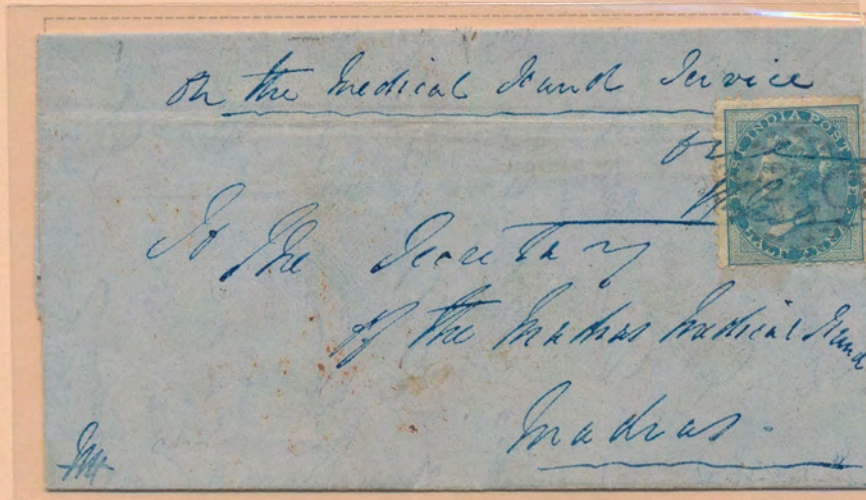 On the Medical Fund Service
EAST INDIA POSTAGE
HALF ANNA
To The Secretary
of the Madras Medical Fund
Madras.